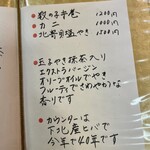 数の子千巻 1200円
カニ 1000円
北寄貝塩やき 1500円
玉子やき抹茶入り
エクストラバージン
オリーブオイルでやき
フルーティでさわやかな
香りです
カウンターは
下北産ヒバで
今年で40年です